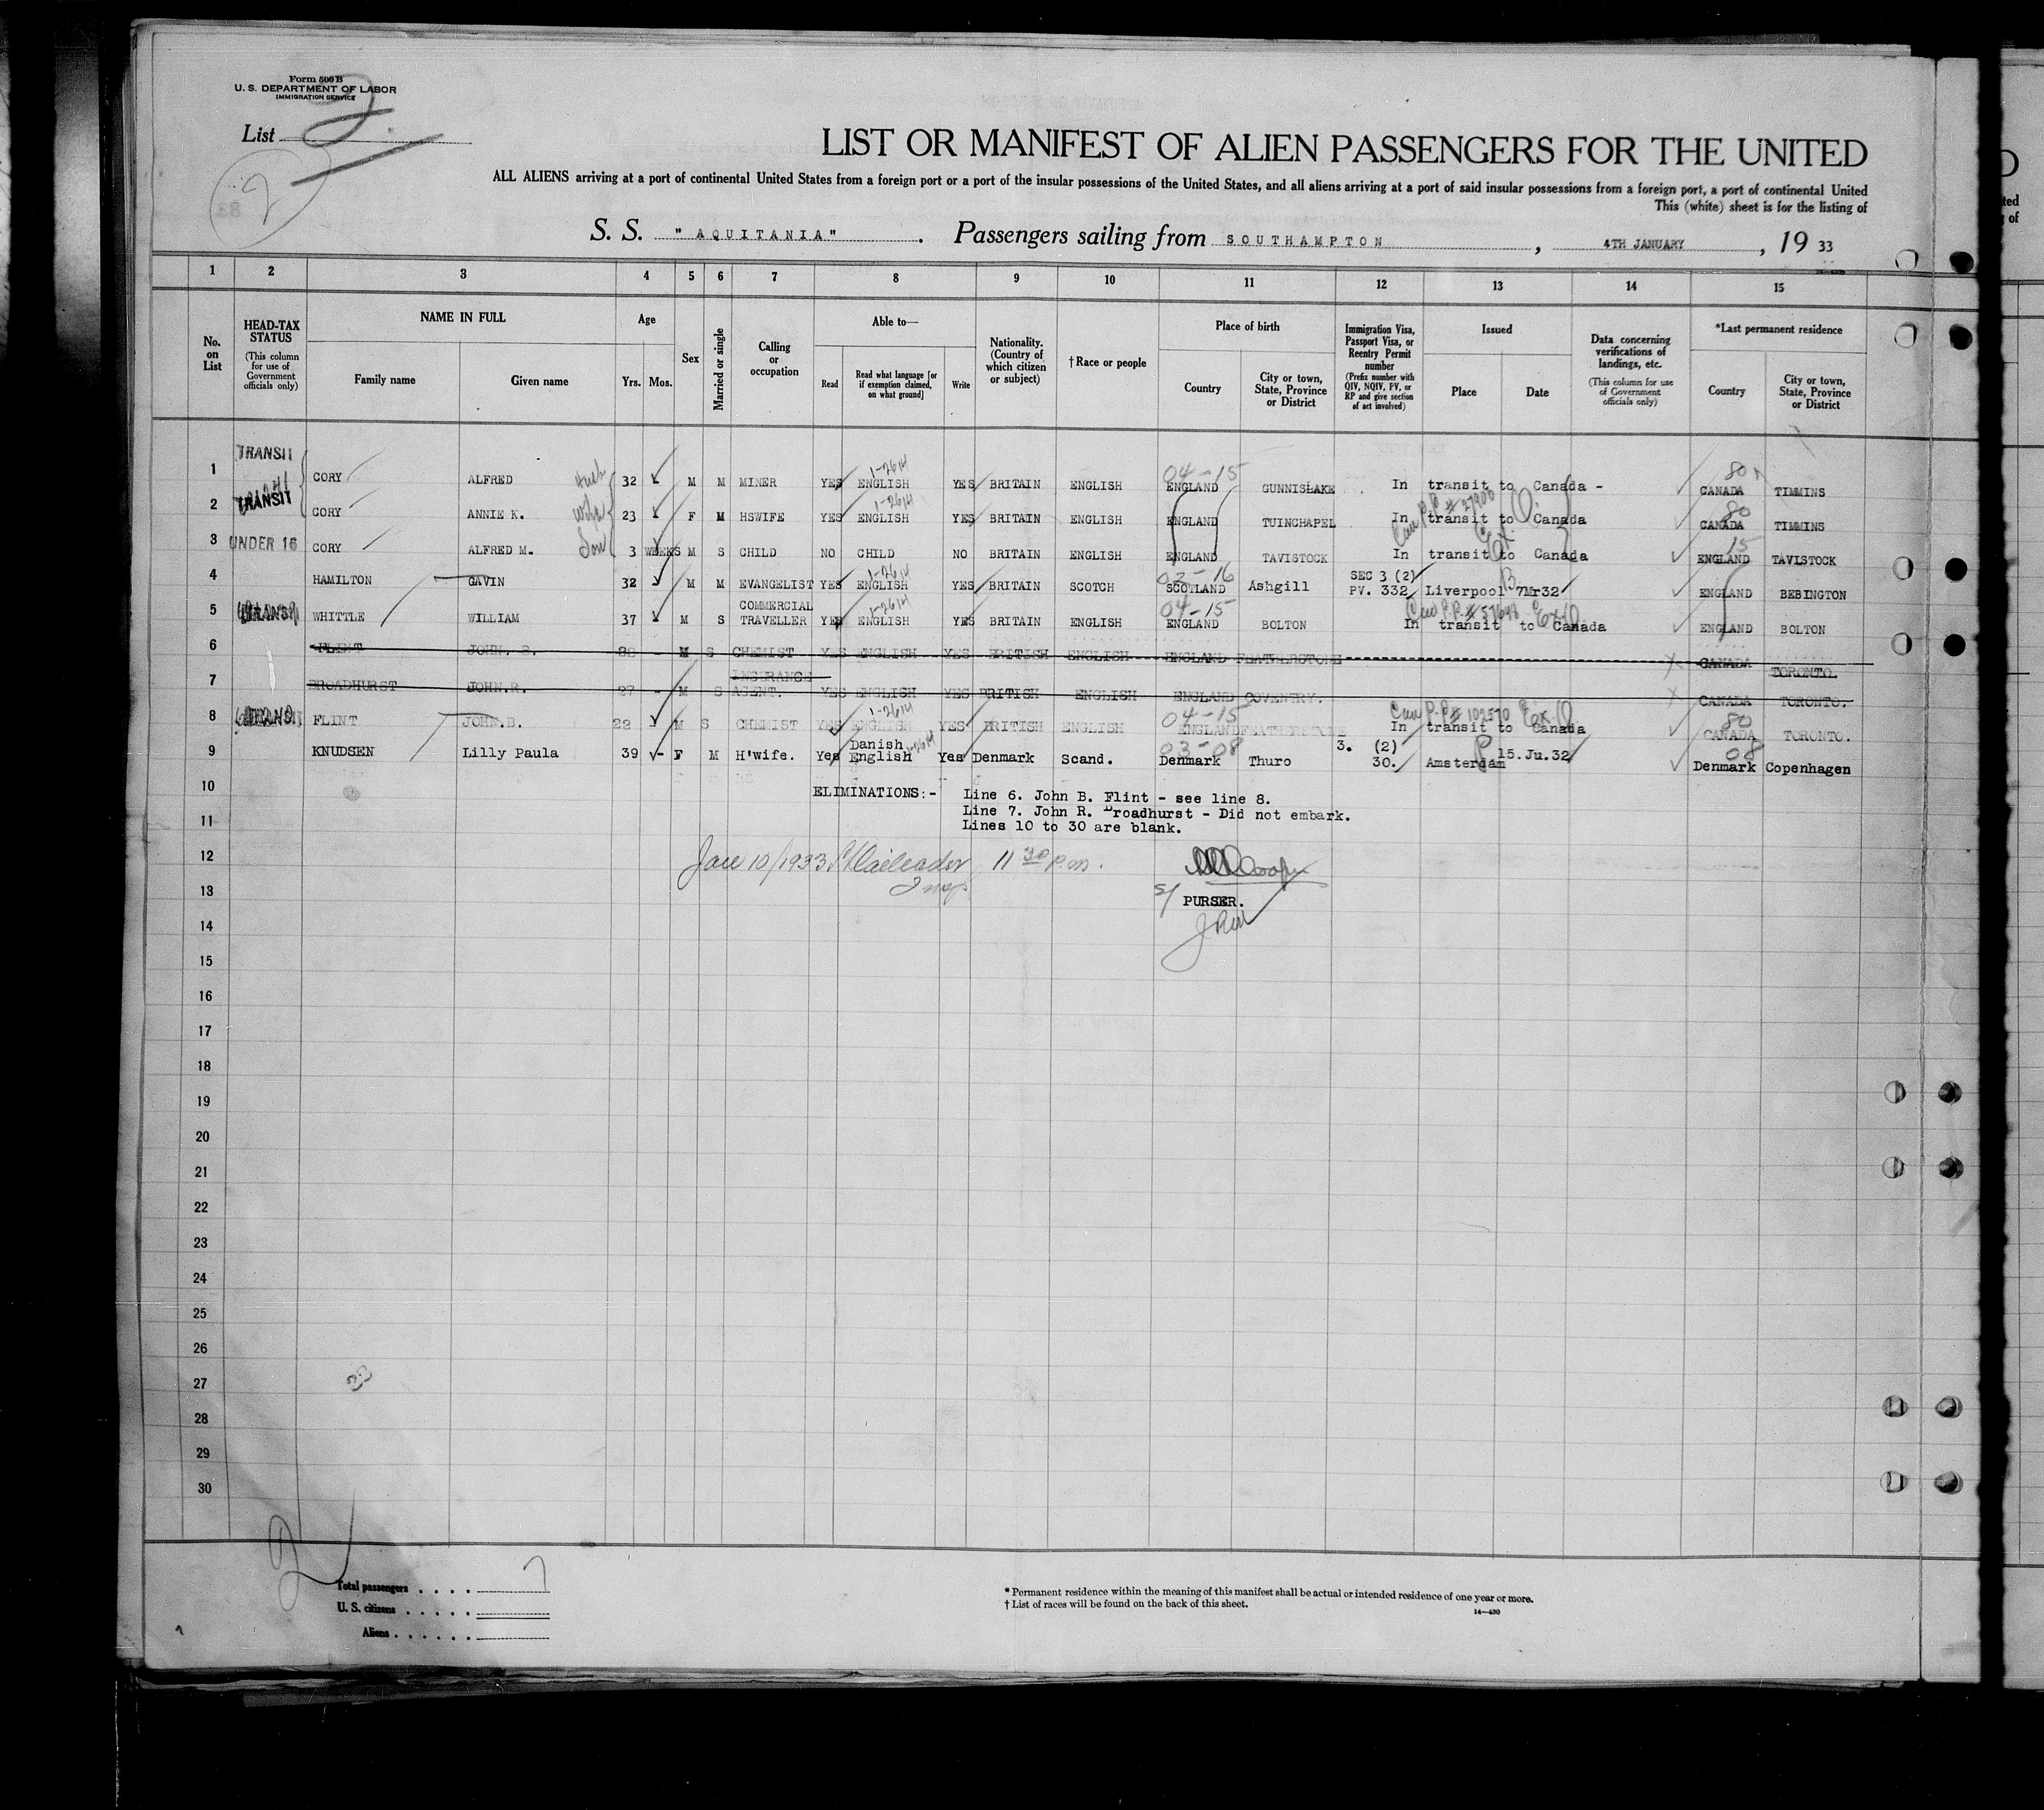 Form 500 B
U. S. DEPARTMENT OF LABOR
IMMIGRATION SERVICE
List 2.
2
LIST OR MANIFEST OF ALIEN PASSENGERS FOR THE UNITED
ALL ALIENS arriving at a port of continental United States from a foreign port or a port of the insular possessions of the United States, and all aliens arriving at a port of said insular possessions from a foreign port, a port of continental United
This (white) sheet is for the listing of
S. S. "AQUITANIA". Passengers sailing from SOUTHAMPTON, 4TH JANUARY, 19 33
1 2 3 4 5 6 7 8 9 10 11 12 13 14 15
No. on List
HEAD-TAX STATUS (This column for use of Government officials only)
NAME IN FULL
Family name
Given name
Age
Yrs. Mos.
Sex
Married or single
Calling or occupation
Able to—
Read
Read what language [or if exemption claimed, on what ground]
Write
Nationality. (Country of which citizen or subject)
† Race or people
Place of birth
Country
City or town, State, Province or District
Immigration Visa, Passport Visa, or Reentry Permit number (Prefix number with QIV, NQIV, PV, or RP and give section of act involved)
Issued
Place
Date
Data concerning verifications of landings, etc. (This column for use of Government officials only)
*Last permanent residence
Country
City or town, State, Province or District
1 TRANSIT CORY ALFRED Husb 32 M M MINER YES ENGLISH 1-26H YES BRITAIN ENGLISH 04-15 ENGLAND GUNNISLAKE In transit to Canada - 80 CANADA TIMMINS
2 TRANSIT CORY ANNIE K. Wife 23 F M HSWIFE YES ENGLISH 1-26H YES BRITAIN ENGLISH ENGLAND TUINCHAPEL Can P.P. # 27900 In transit to Canada 80 CANADA TIMMINS
3 UNDER 16 CORY ALFRED M. Son 3 WEEKS M S CHILD NO CHILD NO BRITAIN ENGLISH ENGLAND TAVISTOCK In transit to Canada 15 ENGLAND TAVISTOCK
4 HAMILTON GAVIN 32 M M EVANGELIST YES ENGLISH 1-26H YES BRITAIN SCOTCH 03-16 SCOTLAND Ashgill SEC 3 (2) PV. 332 Liverpool 7Mr32 ENGLAND BEBINGTON
5 TRANSIT WHITTLE WILLIAM 37 M S COMMERCIAL TRAVELLER YES ENGLISH 1-26H YES BRITAIN ENGLISH 04-15 ENGLAND BOLTON In transit to Canada ENGLAND BOLTON
6 FLINT JOHN. B. M S CHEMIST YES ENGLISH YES BRITISH ENGLISH ENGLAND FEATHERSTONE CANADA TORONTO.
7 BROADHURST JOHN.R. 27 - M S INSURANCE AGENT. YES ENGLISH YES BRITISH ENGLISH ENGLAND COVENTRY. CANADA TORONTO.
8 TRANSIT FLINT JOHN.B. 22 M S CHEMIST YES ENGLISH 1-26H YES BRITISH ENGLISH 04-15 ENGLAND FEATHERSTONE Can P.P.# 102570 In transit to Canada 80 CANADA TORONTO.
9 KNUDSEN Lilly Paula 39 - F M H'wife. Yes Danish English Yes Denmark Scand. 03-08 Denmark Thuro 3. (2) 30. Amsterdam 15.Ju.32 08 Denmark Copenhagen
10 ELIMINATIONS:- Line 6. John B. Flint - see line 8.
11 Line 7. John R. Broadhurst - Did not embark.
Lines 10 to 30 are blank.
12 Jan 10/1933 11 30 P.M.
13 PURSER.
14
15
16
17
18
19
20
21
22
23
24
25
26
27
28
29
30
2
Total passengers . . . . 7
U. S. citizens . . . . . .
Aliens . . . . . .
* Permanent residence within the meaning of this manifest shall be actual or intended residence of one year or more.
† List of races will be found on the back of this sheet.
14—430